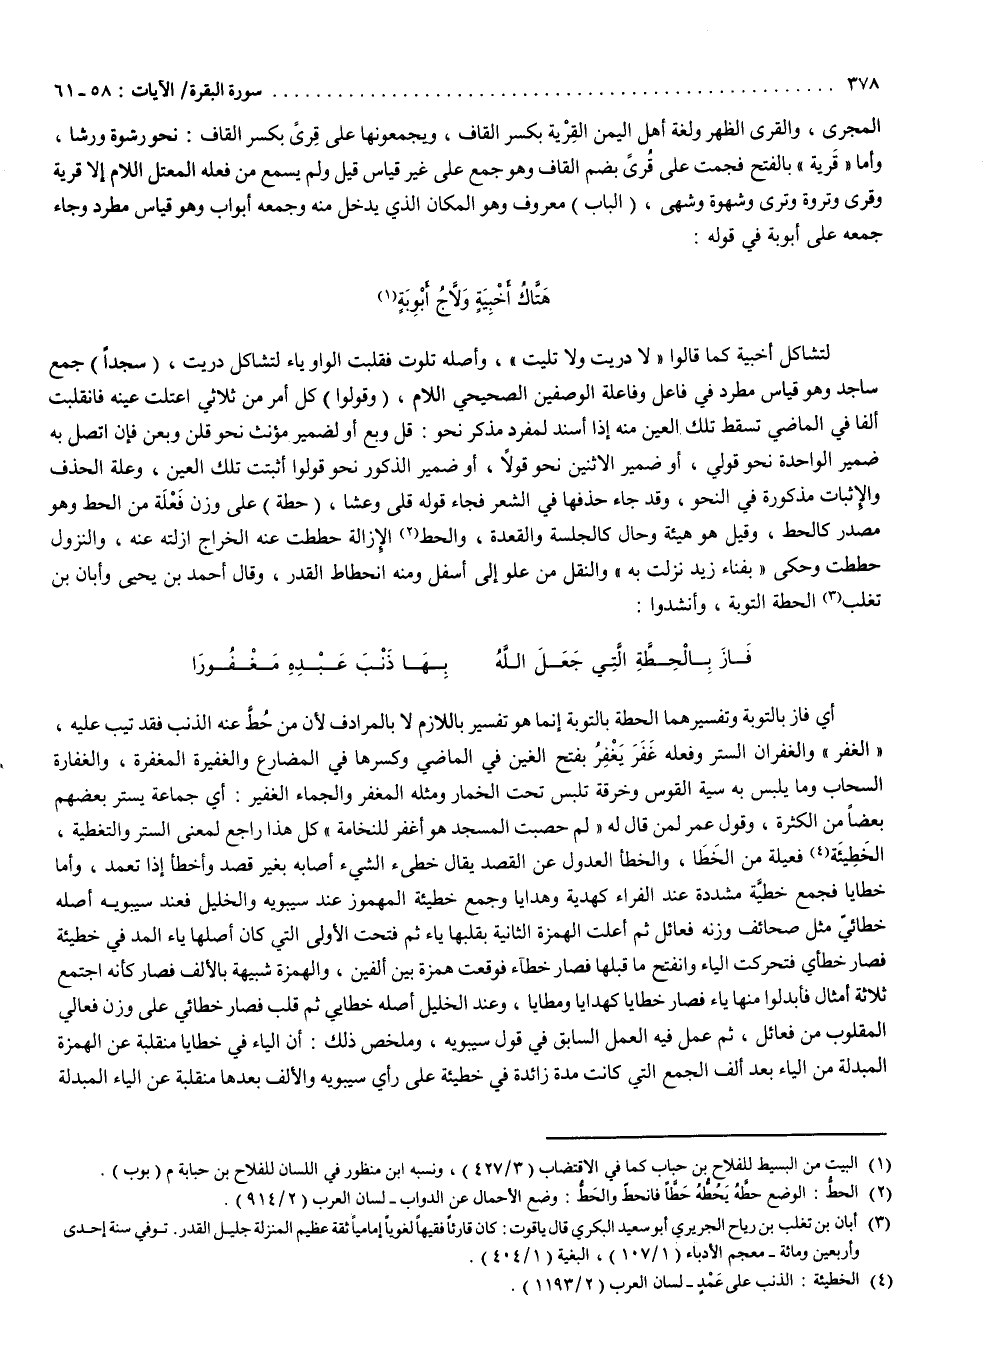 ٣٧٨ ........................................................ سورة البقرة/ الآيات : ٥٨ ـ ٦١
المجرى ، والقرى الظهر ولغة أهل اليمن القِرْية بكسر القاف ، ويجمعونها على قِرىً بكسر القاف : نحو رشوة ورشا ،
وأما « قَرية » بالفتح فجمت على قُرىً بضم القاف وهو جمع على غير قياس قيل ولم يسمع من فعله المعتل اللام إلا قرية
وقرى وتروة وترى وشهوة وشهى ، ( الباب ) معروف وهو المكان الذي يدخل منه وجمعه أبواب وهو قياس مطرد وجاء
جمعه على أبوبة في قوله :
هَتَّاكُ أَخْبِيَةٍ وَلاَّجُ أَبْوِبَةٍ(١)
لتشاكل أخبية كما قالوا « لا دريت ولا تليت » ، وأصله تلوت فقلبت الواو ياء لتشاكل دريت ، ( سجداً ) جمع
ساجد وهو قياس مطرد في فاعل وفاعلة الوصفين الصحيحي اللام ، ( وقولوا ) كل أمر من ثلاثي اعتلت عينه فانقلبت
ألفا في الماضي تسقط تلك العين منه إذا أسند لمفرد مذكر نحو : قل وبع أو لضمير مؤنث نحو قلن وبعن فإن اتصل به
ضمير الواحدة نحو قولي ، أو ضمير الاثنين نحو قولاً ، أو ضمير الذكور نحو قولوا أثبتت تلك العين ، وعلة الحذف
والإثبات مذكورة في النحو ، وقد جاء حذفها في الشعر فجاء قوله قلى وعشا ، ( حطة ) على وزن فَعْلَة من الحط وهو
مصدر كالحط ، وقيل هو هيئة وحال كالجلسة والقعدة ، والحط(٢) الإزالة حططت عنه الخراج ازلته عنه ، والنزول
حططت وحكى « بفناء زيد نزلت به » والنقل من علو إلى أسفل ومنه انحطاط القدر ، وقال أحمد بن يحيى وأبان بن
تغلب(٣) الحطة التوبة ، وأنشدوا :
فَازَ بِالْحِطَّةِ الَّتِي جَعَلَ اللَّهُ بِهَا ذَنْبَ عَبْدِهِ مَغْفُورَا
أي فاز بالتوبة وتفسيرهما الحطة بالتوبة إنما هو تفسير باللازم لا بالمرادف لأن من حُطَّ عنه الذنب فقد تيب عليه ،
« الغفر » والغفران الستر وفعله غَفَرَ يَغْفِرُ بفتح الغين في الماضي وكسرها في المضارع والغفيرة المغفرة ، والغفارة
السحاب وما يلبس به سية القوس وخرقة تلبس تحت الخمار ومثله المغفر والجماء الغفير : أي جماعة يستر بعضهم
بعضاً من الكثرة ، وقول عمر لمن قال له « لم حصبت المسجد هو أغفر للنخامة » كل هذا راجع لمعنى الستر والتغطية ،
الخَطِيئَة(٤) فعيلة من الخَطَا ، والخطأ العدول عن القصد يقال خطىء الشيء أصابه بغير قصد وأخطأ إذا تعمد ، وأما
خطايا فجمع خطيَّة مشددة عند الفراء كهدية وهدايا وجمع خطيئة المهموز عند سيبويه والخليل فعند سيبويه أصله
خطائيّ مثل صحائف وزنه فعائل ثم أعلت الهمزة الثانية بقلبها ياء ثم فتحت الأولى التي كان أصلها ياء المد في خطيئة
فصار خطأي فتحركت الياء وانفتح ما قبلها فصار خطآء فوقعت همزة بين ألفين ، والهمزة شبيهة بالألف فصار كأنه اجتمع
ثلاثة أمثال فأبدلوا منها ياء فصار خطايا كهدايا ومطايا ، وعند الخليل أصله خطايي ثم قلب فصار خطائي على وزن فعالي
المقلوب من فعائل ، ثم عمل فيه العمل السابق في قول سيبويه ، وملخص ذلك : أن الياء في خطايا منقلبة عن الهمزة
المبدلة من الياء بعد ألف الجمع التي كانت مدة زائدة في خطيئة على رأي سيبويه والألف بعدها منقلبة عن الياء المبدلة
(١) البيت من البسيط للفلاح بن حباب كما في الاقتضاب ( ٤٢٧/٣ ) ، ونسبه ابن منظور في اللسان للفلاح بن حبابة م ( بوب ) .
(٢) الحطُّ : الوضع حطَّهُ يَحُطُّهُ حَطَّاً فانحطَّ والحَطُّ : وضع الأحمال عن الدواب ـ لسان العرب ( ٩١٤/٢ ) .
(٣) أبان بن تغلب بن رياح الجريري أبو سعيد البكري قال ياقوت : كان قارئاً فقيهاً لغوياً إمامياً ثقة عظيم المنزلة جليل القدر . توفي سنة إحدى
وأربعين ومائة ـ معجم الأدباء ( ١٠٧/١ ) ، البغية ( ٤٠٤/١ ) .
(٤) الخطيئة : الذنب على عَمْدٍ ـ لسان العرب ( ١١٩٣/٢ ) .